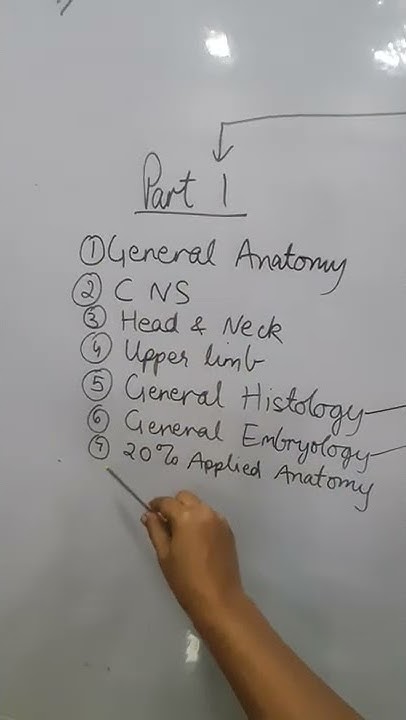 Part 1
① General Anatomy
② CNS
③ Head & Neck
④ Upper limb
⑤ General Histology
⑥ General Embryology
⑦ 20% Applied Anatomy